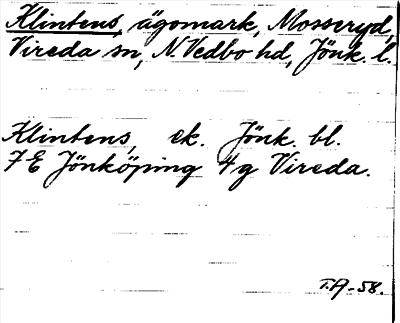 Klintens, ägomark, Mosseryd,
Vireda sn, N. Vedbo hd, Jönk. l.
Klintens, ek. Jönk. bl.
7E Jönköping 4g Vireda.
T.A-58.